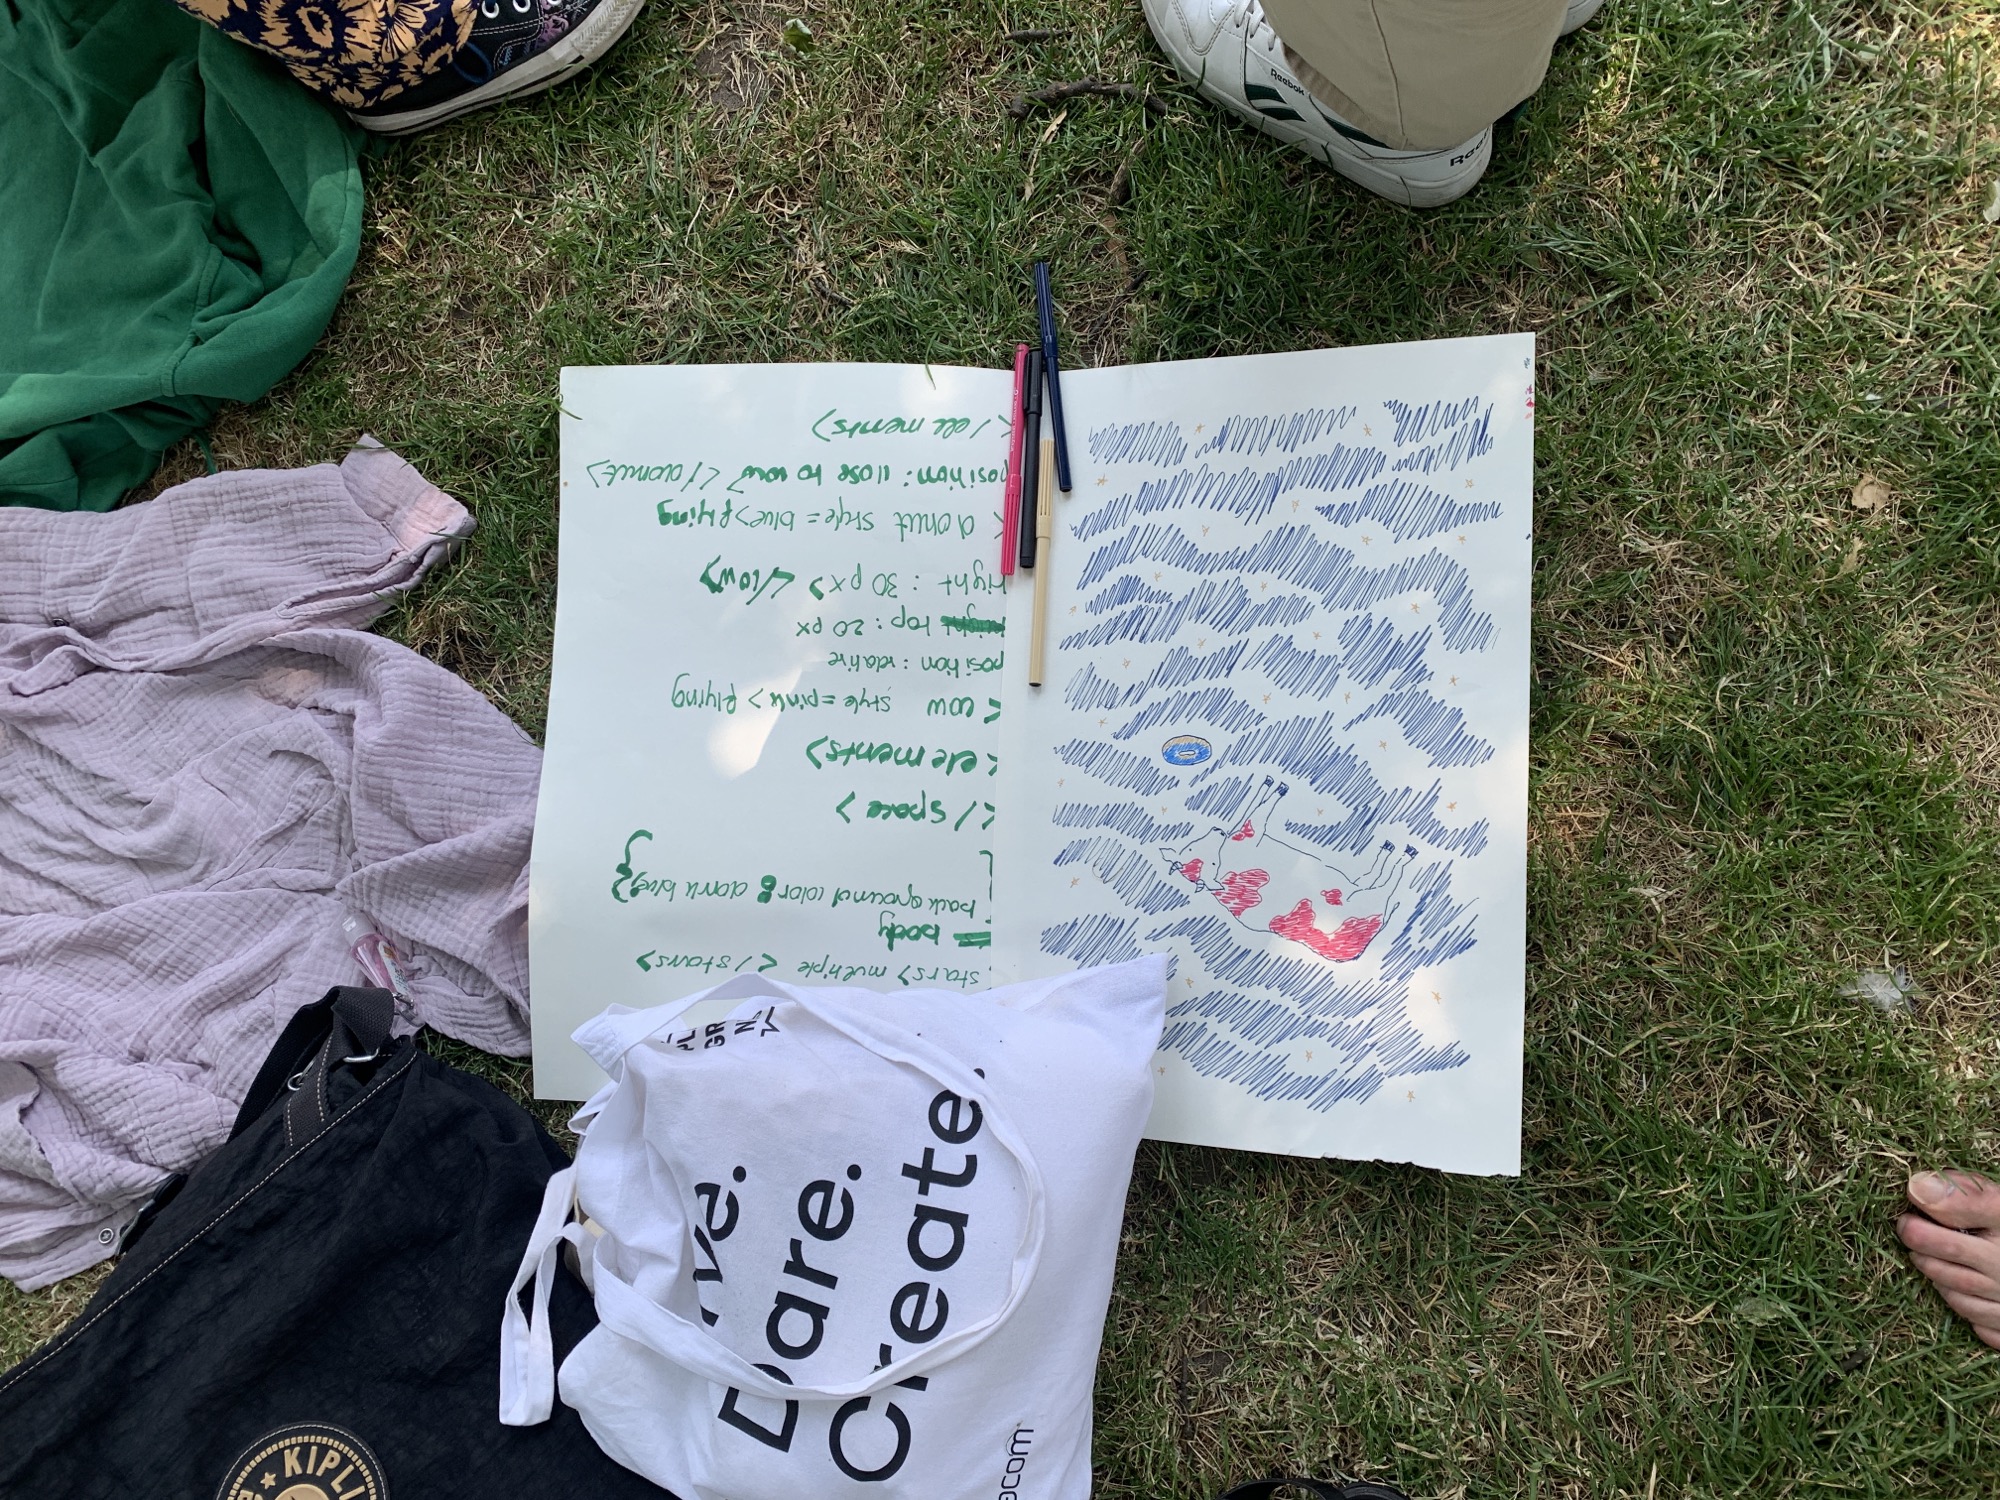 ecom
Dare.
Create.
KIPLI
stars> multiple </stars>
body
{ background color: dark blue; }
</space>
<elements>
<cow style=pink> flying
position : relative
top : 20 px
right : 30 px> </cow>
< donut style= blue> flying
position: close to cow> </donut>
</elements>
Reebok